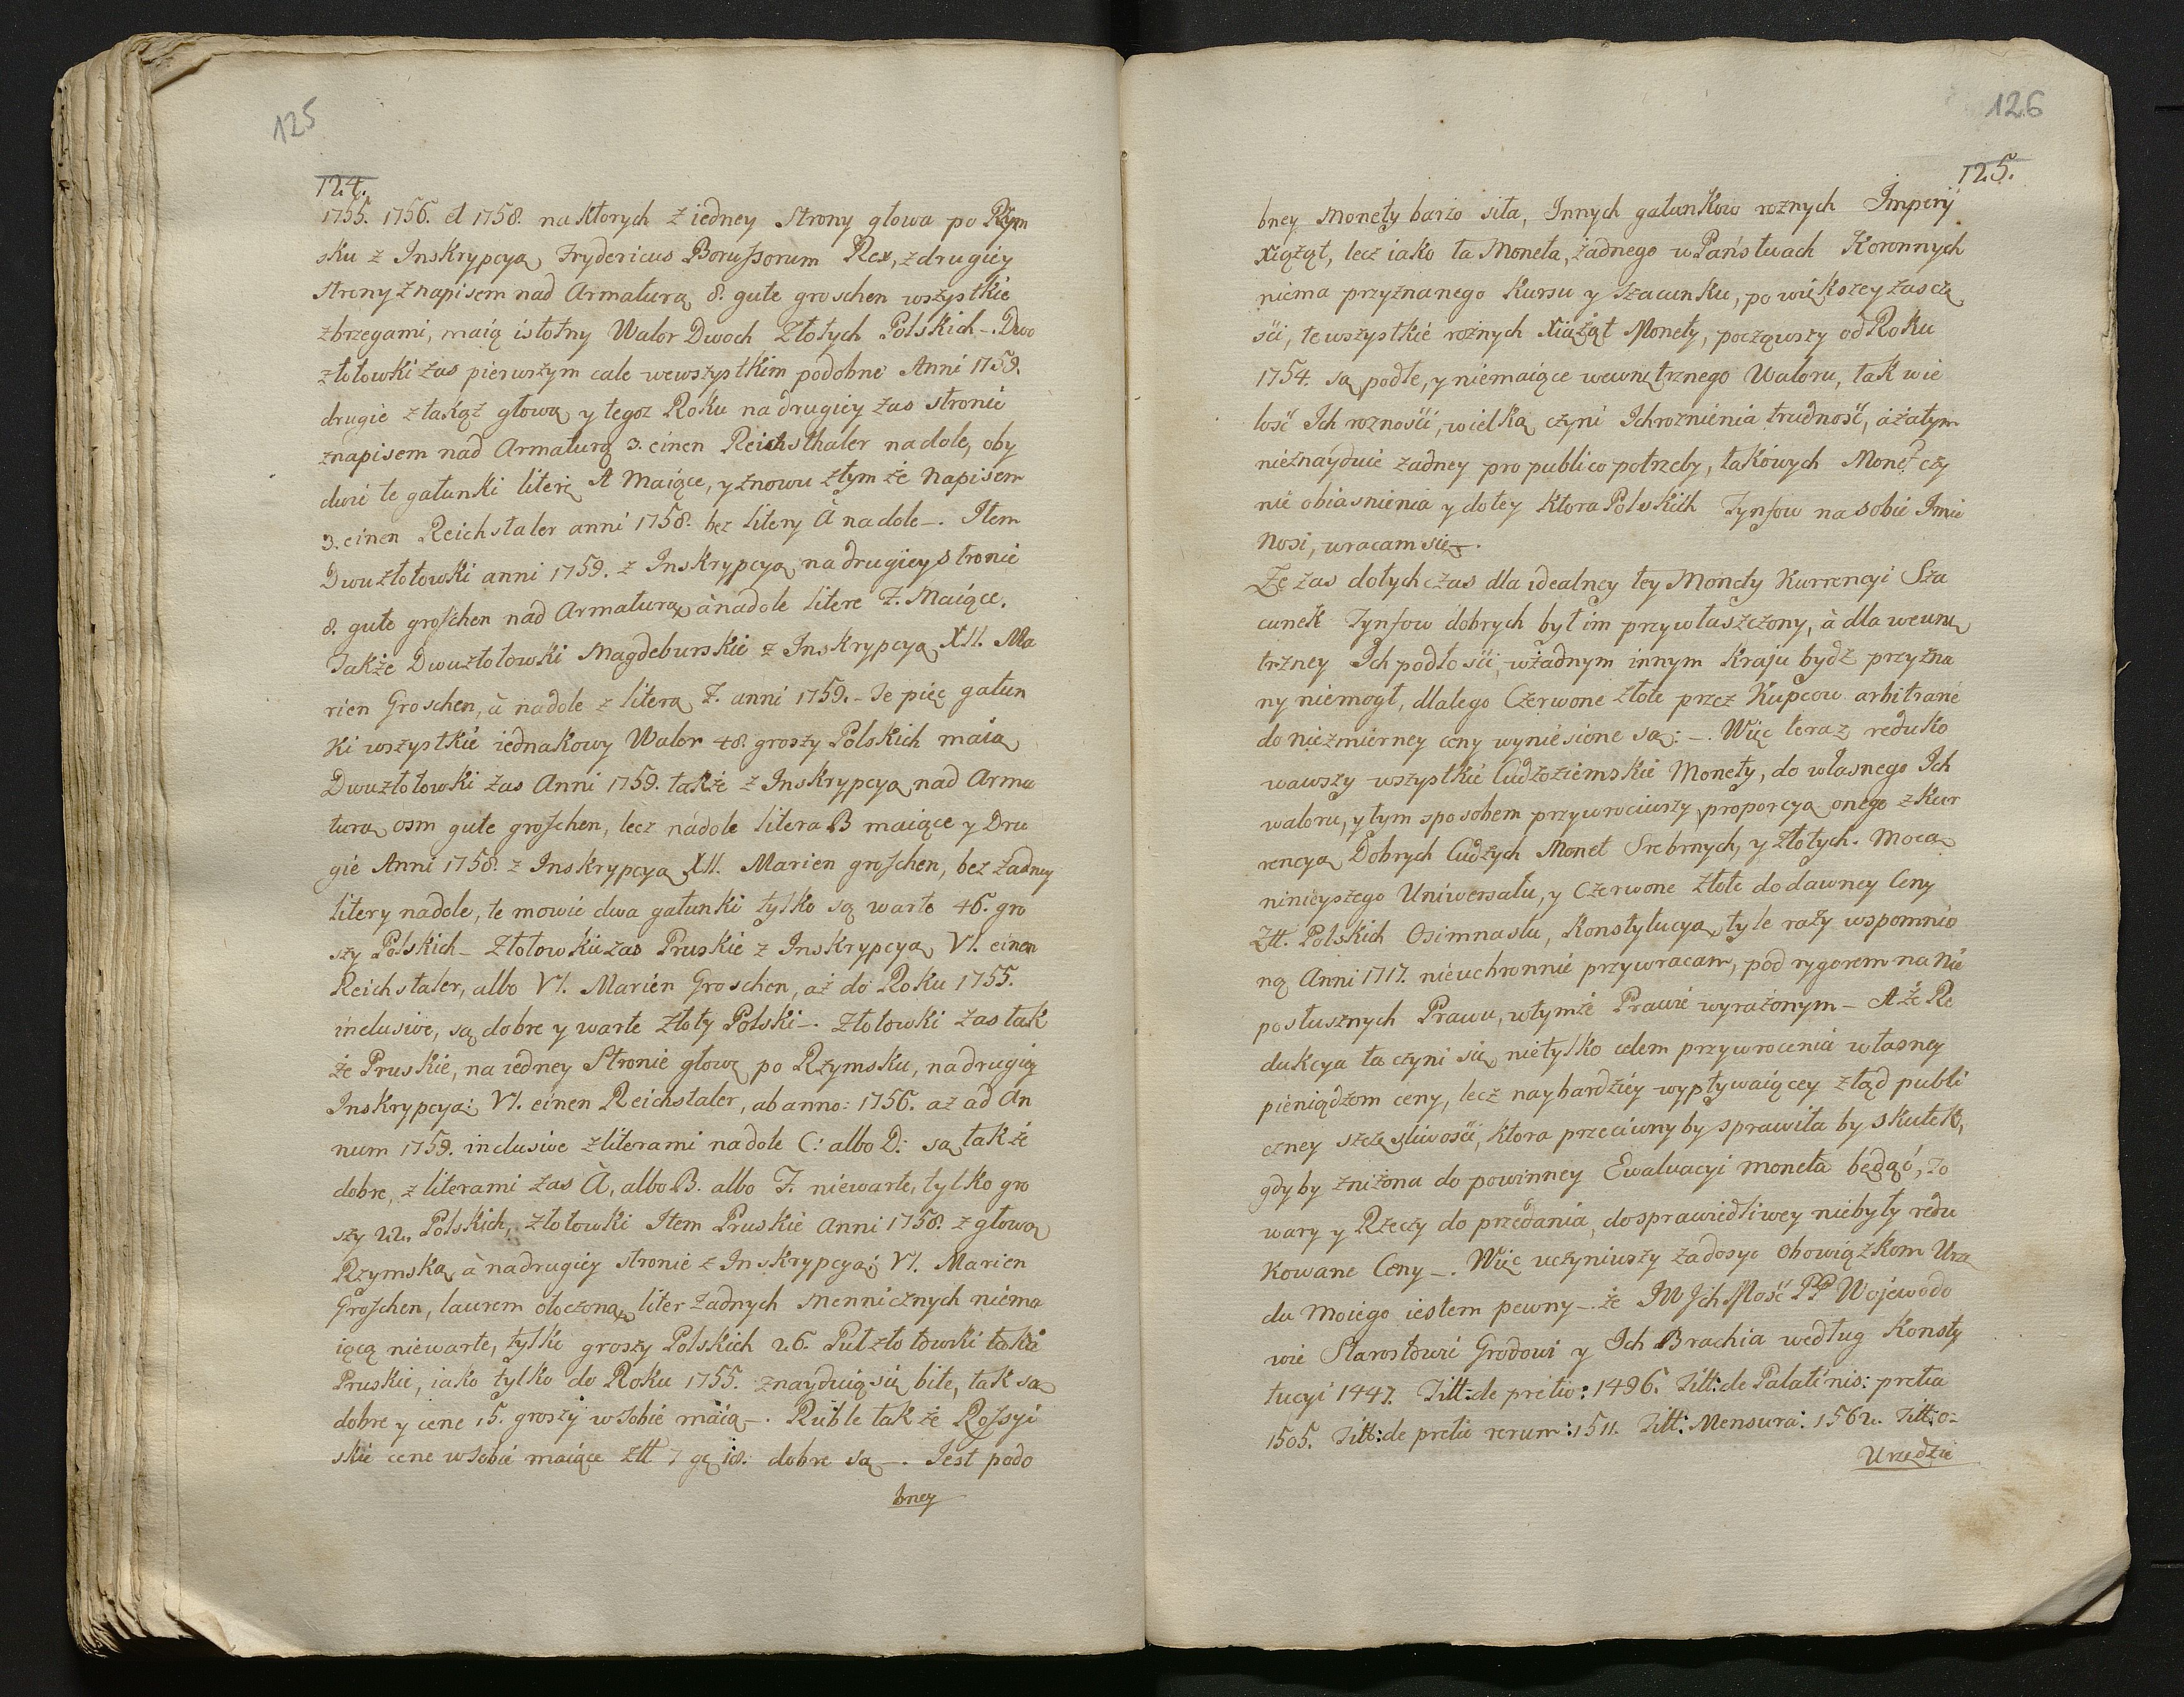 125
124.
1755. 1756. et 1758. na ktorych z iedney Strony głowa po Rzym
sku z Inskrypcyą Frydericus Borussorum Rex, z drugiey
strony z napisem nad Armaturą 8. gute groschen wszystkie
z brzegami, maią istotny Walor Dwoch Złotych Polskich -. Dwu
złotowki zas pierwszym cale wewszystkim podobne Anni 1759.
drugie z takąż głową y tegoż Roku na drugiey zas stronie
z napisem nad Armaturą 3. einen Reichsthaler na dole, oby
dwie te gatunki literę A Maiące, y znowu z tym że Napisem
3. einen Reichstaler anni 1758. bez litery A na dole -. Item
Dwuzłotowki anni 1759. z Inskrypcyą na drugiey stronie
8. gute groschen nad Armaturą, à na dole litere F. Maiące.
Także Dwuzłotowki Magdeburskie z Inskrypcyą XII. Ma
rien Groschen, à na dole z literą F. anni 1759. - Te pięc gatun
ki wszystkie iednakowy Walor 48 groszy Polskich maią
Dwuzłotowki zas Anni 1759. także z Inskrypcyą nad Arma
turą osm gute groschen, lecz na dole litera B maiące y Dru
gie Anni 1758. z Inskrypcyą XII. Marien groschen, bez żadney
litery na dole, te mowie dwa gatunki tylko są warte 46. gro
szy Polskich - Złotowkie zas Pruskie z Inskrypcyą VI. einen
Reichstaler, albo VI. Marien Groschen, aż do Roku 1755.
inclusive, są dobre y warte Złoty Polski -. Złotowki zas tak
że Pruskie, na iedney Stronie głowę po Rzymsku, na drugią
Inskrypcyą: VI. einen Reichstaler, ab anno: 1756. aż ad An
num 1759. inclusive z literami na dole C: albo D: są także
dobre, z literami zas A, albo B. albo F. niewarte, tylko gro
szy 22. Polskich, Złotowki Item Pruskie Anni 1758. z głową
Rzymską à na drugiey stronie z Inskrypcyą: VI. Marien
Groschen, laurem otoczoną, liter żadnych Mennicznych niema
iącą niewarte, tylko groszy Polskich 26. Puł złotowki takie
Pruskie, iako tylko do Roku 1755. znayduią się bite, tak są
dobre y cene 15. groszy w sobie maią -. Ruble tak że Rossyi
skie cene w sobie maiące złł 7 gr 18. dobre są -. Jest podo
bney
126
125.
bney Monety barzo siła, Innych gatunkow roznych Imperÿ
Xiążąt, lecz iako ta Moneta, żadnego w Państwach Koronnych
niema przyznanego Kursu y Szacunku, po większey zas czę
sći, te wszystkie rożnych Xiążąt Monety, począwszy od Roku
1754. są podłe, y niemaiące wewnętrznego Waloru, tak wie
lość Ich roznosći, wielką czyni Ich roznienia trudność, a zatym
nieznayduie żadney pro publico potrzeby, takowych Monet czy
nie obiasnienia y do tey ktora Polskich Tynfow na sobie Imie
Nosi, wracam się -.
Że zas dotychczas dla idealney tey Monety Kurrencyi Sza
cunek Tynfow dobrych był im przywłaszczony, à dla wewnę
trzney Ich podłosći, w żadnym innym Kraju bydź przyzna
ny niemogł, dlatego Czerwone złote przez Kupcow arbitrane
do niezmierney ceny wyniesione są: -. Więc teraz reduko
wawszy wszystkie Cudzoziemskie Monety, do własnego Ich
waloru, y tym sposobem przywrociwszy proporcyą onego z Kur
rencyą Dobrych Cudzych Monet Srebrnych, y Złotych. Mocą
ninieyszego Uniwersału, y Czerwone złote do dawney Ceny
Złł. Polskich Osimnastu, Konstytucyą tyle razy wspomnio
ną Anni 1717. nieuchronnie przywracam, pod rygorem na Nie
posłusznych Prawu, w tymże Prawie wyrażonym - A że Re
dukcya ta czyni się nietylko celem przywrocenia własney
pieniądzom ceny, lecz naybardziey wypływaiącey ztąd publi
czney szczęsliwosći, ktora przeciwny by sprawiła by skutek,
gdyby zniżona do powinney Ewaluacyi moneta będąć, To
wary y Rzeczy do przedania, do sprawiedliwey niebyły redu
kowane Ceny -. Więc uczyniwszy zadosyc Obowiązkom Urzę
du Moiego iestem pewny -. że JW Ich Mość PP Wojewodo
wie Starostowie Grodowi y Ich Brachia według Konsty
tucyi 1447. Titt: de pretio: 1496. Titt: de Palatinis: pretia
1505. Titt: de pretio rerum: 1511. Titt: Mensura: 1562. Titt: o-
Urzędzie